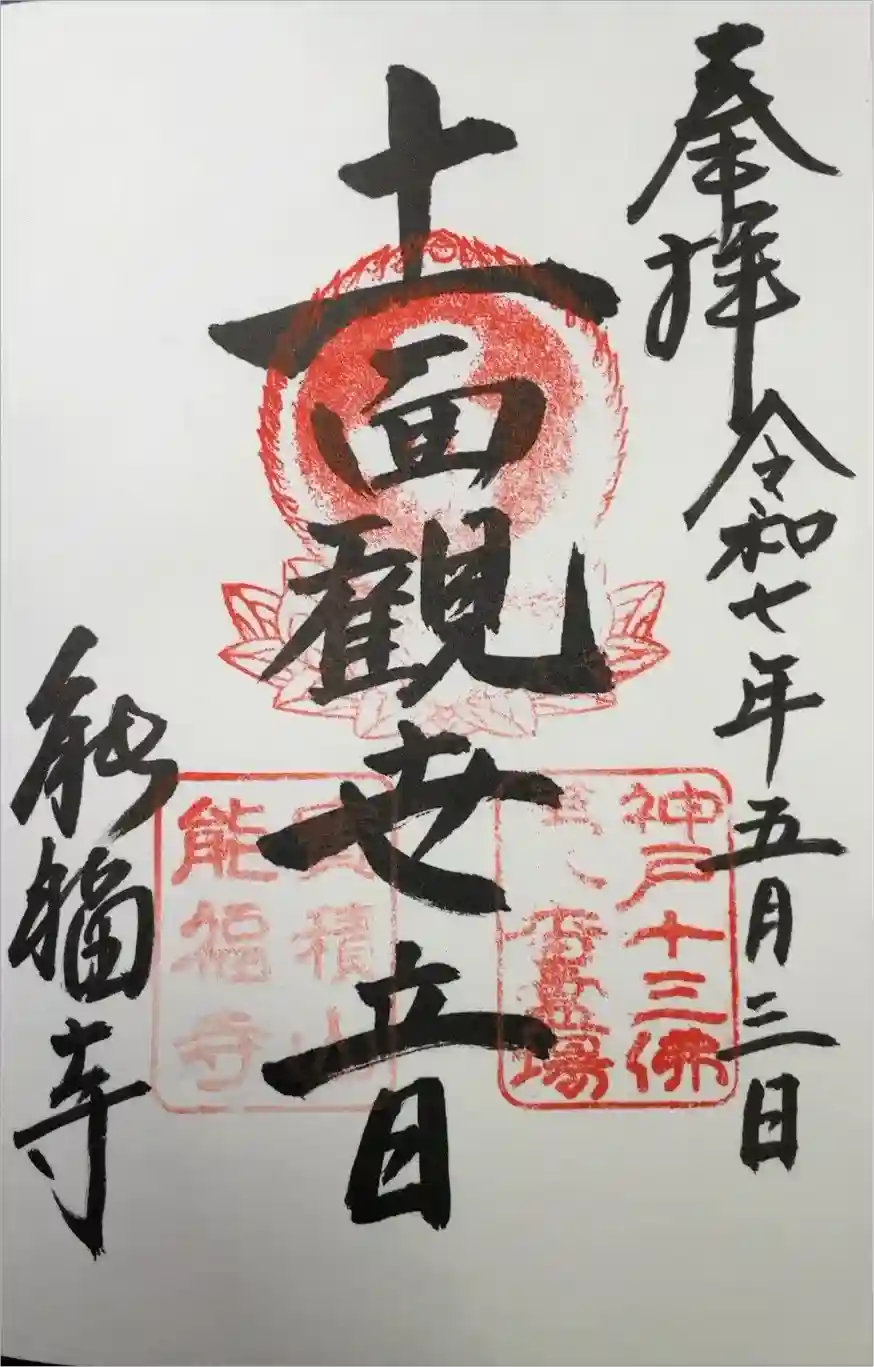 奉拝 令和七年五月三日
十一面観世音
能福寺
神戸十三佛
八番霊場
積山
能福寺